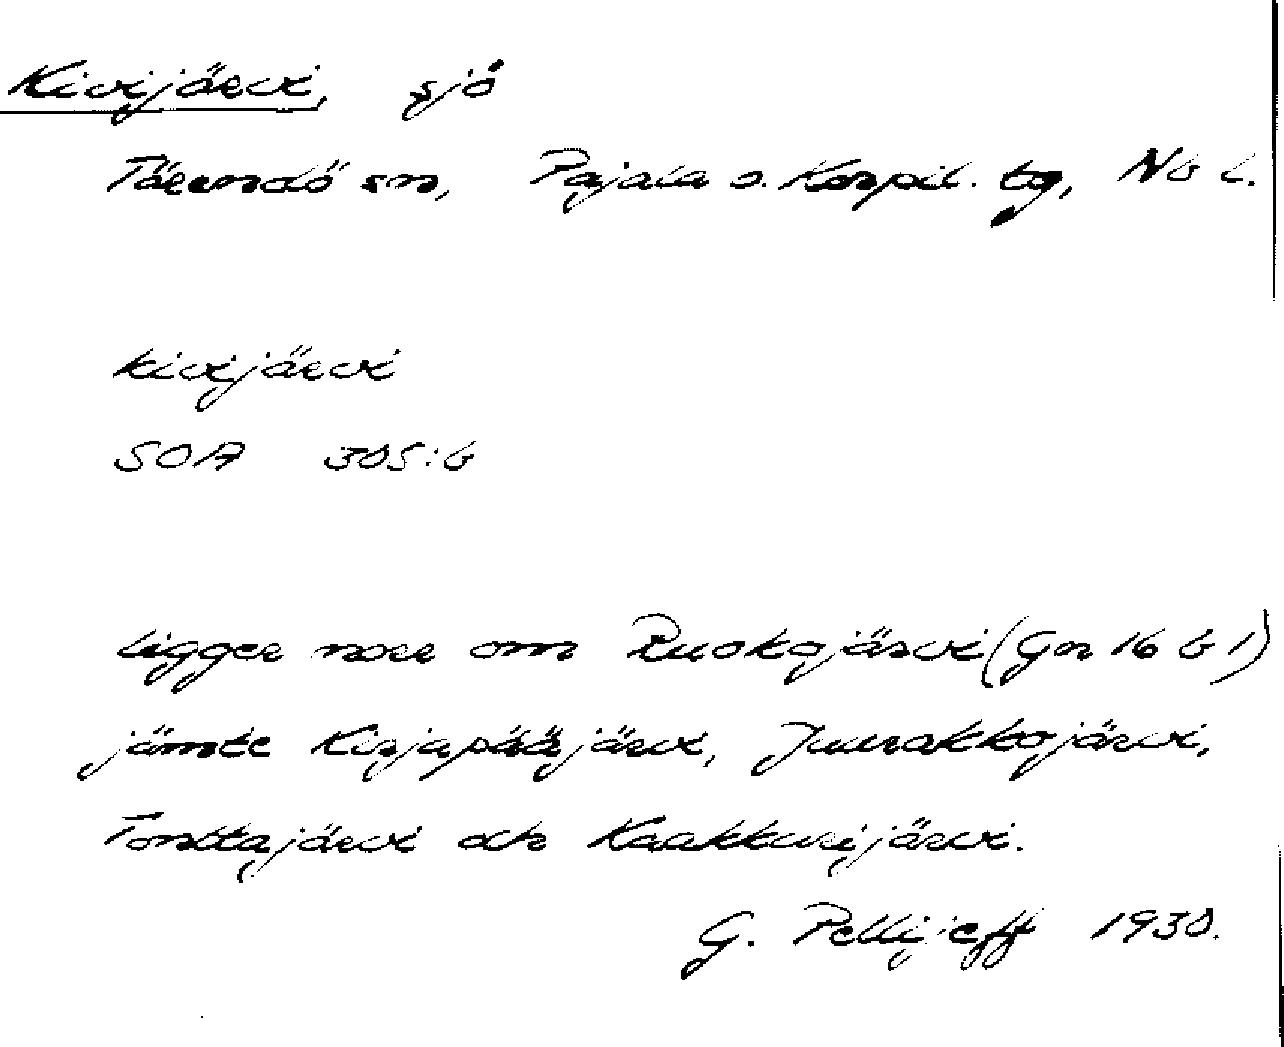 Kivijärvi, sjö
Tärendö sn, Pajala o. Korpil. tg, Nb l.
kivijärvi
SOA 305:b
ligger norr om Ruokojärvi (Gn 16 b 1)
jämte Kirjapääjärvi, Juurakkojärvi,
Tonttajärvi och Kaakkurijärvi.
G. Pellijeff 1930.